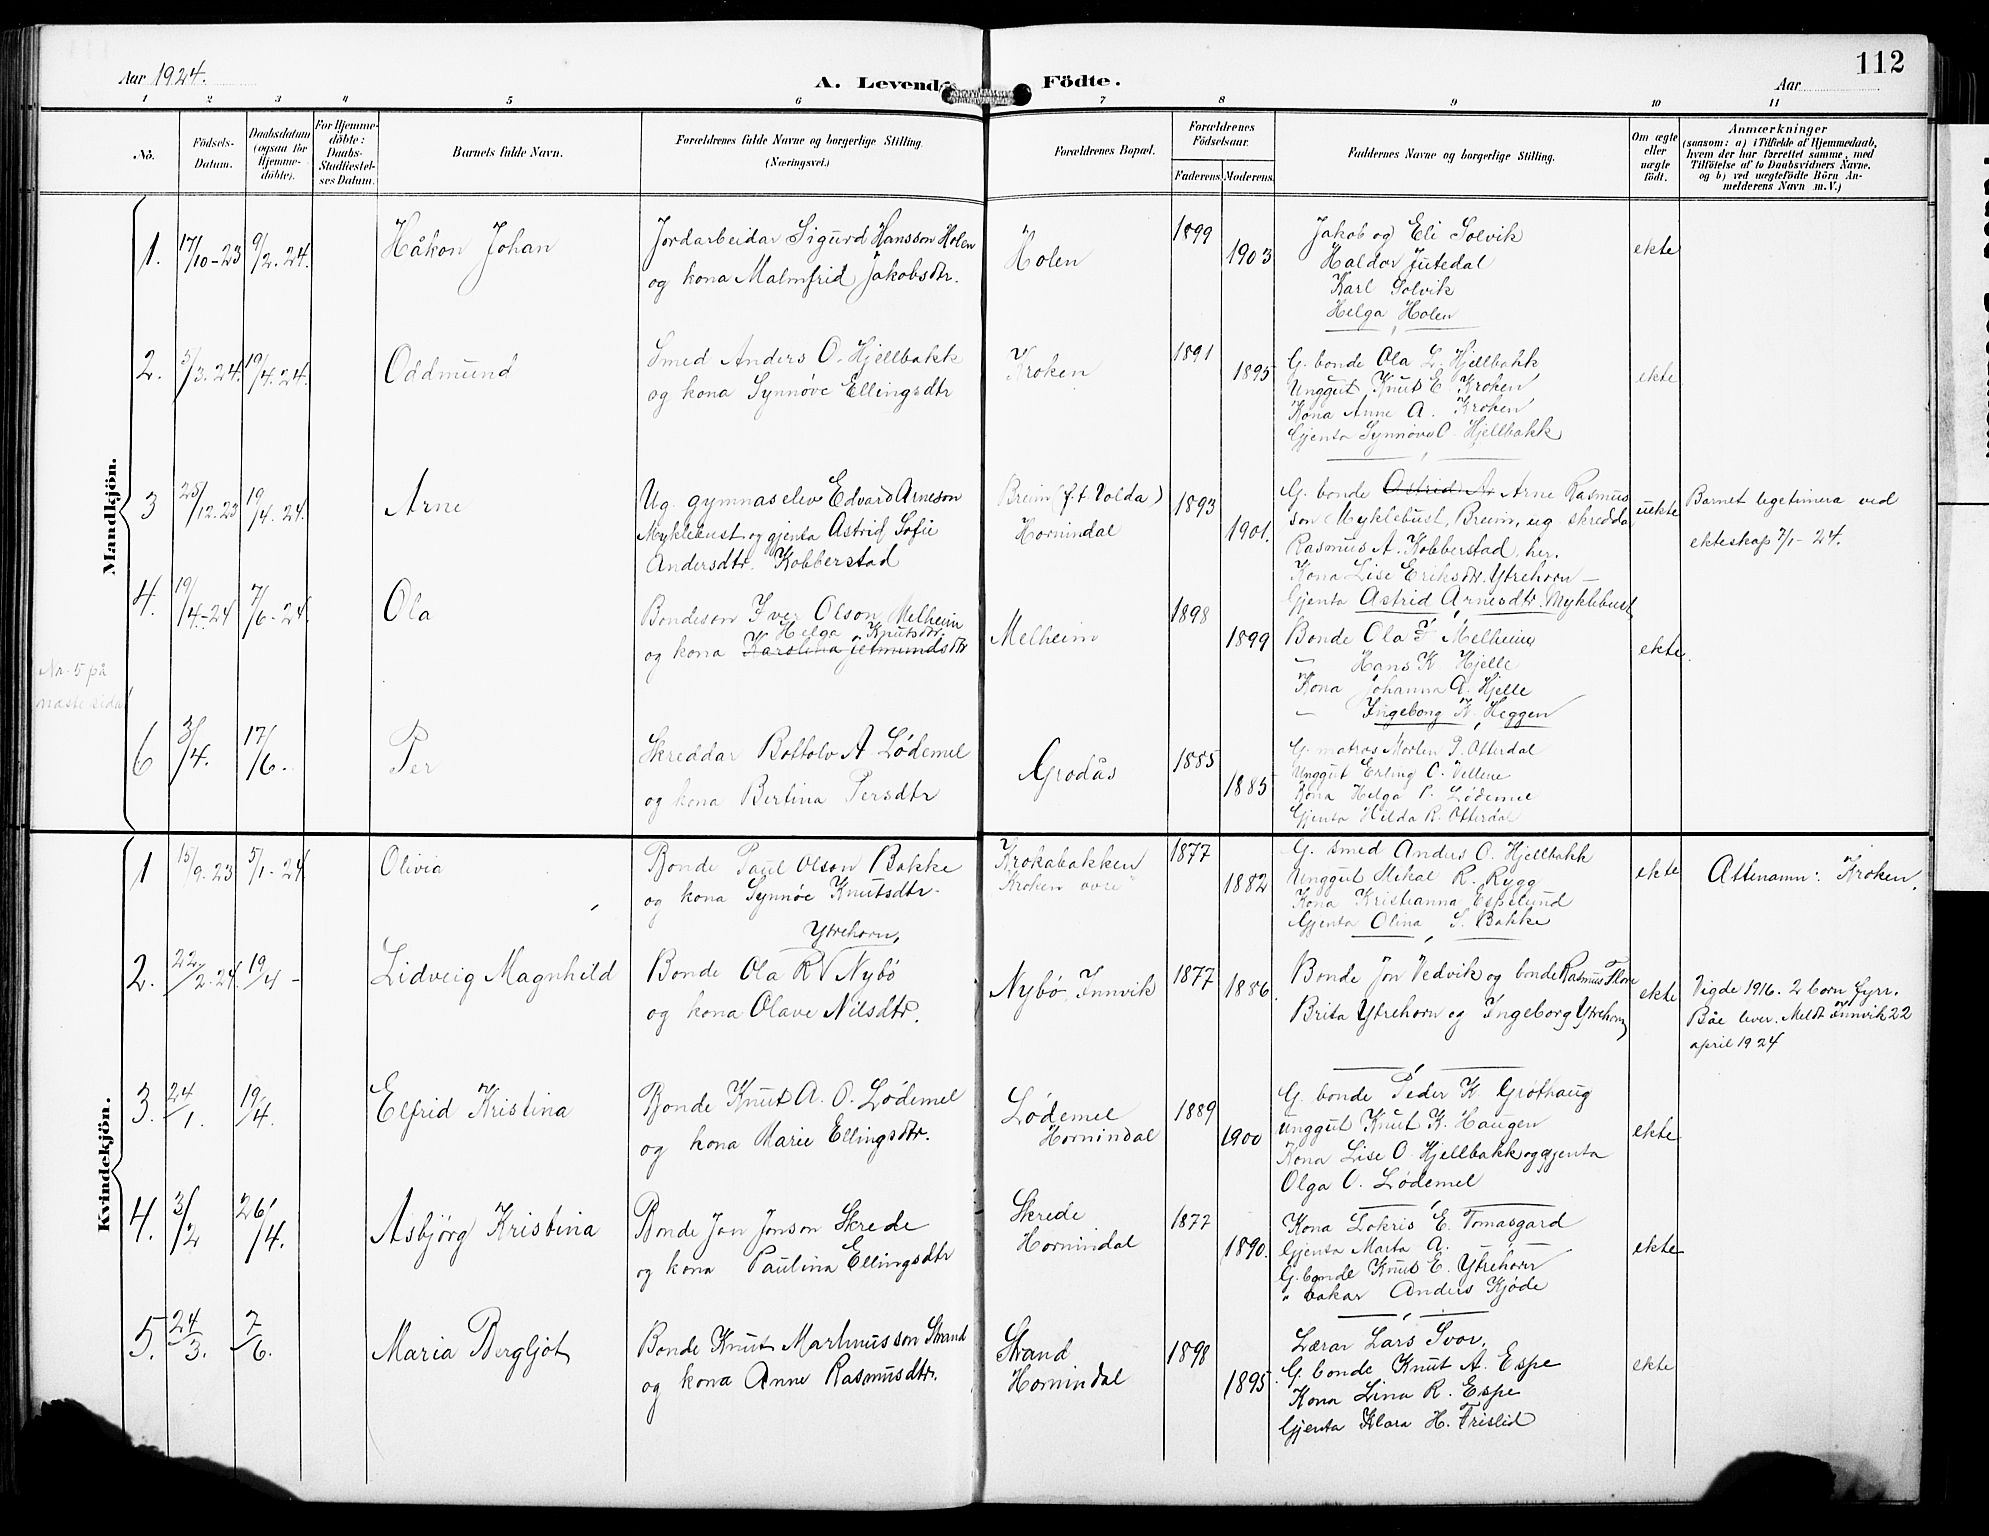 112
Aar 1924.
A. Levende Födte.
Aar
1 2 3 4 5 6 7 8 9 10 11
No.
Födsels-
Datum.
Daabsdatum
(ogsaa för
Hjemme-
döbte).
For Hjemme-
döbte:
Daabs-
Stadfæstel-
ses Datum.
Barnets fulde Navn.
Forældrenes fulde Navne og borgerlige Stilling.
(Næringsvei.)
Forældrenes Bopæl.
Forældrenes
Födselsaar.
Faderens. Moderens.
Faddernes Navne og borgerlige Stilling.
Om ægte
eller
uægte
födt.
Anmærkninger
(saasom: a) i Tilfælde af Hjemmedaab,
hvem der har forrettet samme, med
Tilföielse af to Daabsvidners Navne.
og b) ved uægtefödte Börn An-
melderens Navn m.V.)
Mandkjön.
1. 17/10-23 9/2.24. Håkon Johan
Jordarbeidar Sigurd Hansson Holen
og kona Malmfrid Jakobsdtr.
Holen
1899
1903
Jakob og Eli Solvik
Haldor Jutedal
Karl Solvik
Helga Holen
ekte
2. 5/3.24. 19/4.24. Oddmund
Smed Anders O. Hjellbakk
og kona Synnøve Ellingsdtr
Kroken
1891
1895
G. bonde Ola L. Hjellbakk
Unggut Knut E. Kroken
Kona Anne A. Kroken
Gjenta Synnøve O. Hjellbakk
ekte
3 25/12.23 19/4.24. Arne
Ug. gymnaselev Edvard Arneson
Myklebust og gjenta Astrid Sofie
Andersdtr. Kobberstad
Breim (f.t. Volda)
Hornindal
1893
1901.
G. bonde Astrid Ar Arne Rasmus
son Myklebust, Breim, ug skredda
Rasmus A. Kobberstad, her.
Kona Lise Eriksdtr. Ytrehorn –
Gjenta Astrid Arnesdtr. Myklebust
uekte
Barnet legetimera ved
ekteskap 7/1-24.
4. 19/4-24 7/6-24. Ola
Bondeson Iver Olson Melheim
Helga Knutsdtr.
og kona Karolina Jetmundsdtr
Melheim
1898
1899
Bonde Ola I Melheim
– Hans K Hjelle
Kona Johanna A. Hjelle
– Ingeborg K. Heggen
ekte.
Nr. 5 på
næste sida!
6 3/4. 17/6. Per
Skreddar Bottolv A. Lødemel
og kona Bertina Persdtr
Grodås
1885
1885
G. matros Morten P. Otterdal
Unggut Erling O. Vellene
Kona Helga P. Lødemel
Gjenta Hilda R. Otterdal
Kvindekjön.
1 15/9.23 5/1-24 Olivia
Bonde Paul Olson Bakke
og kona Synnøe Knutsdtr.
Krokabakken
Kroken øvre
1877
1882
G. smed Anders O. Hjellbakk
Unggut Mikal R. Rygg
Kona Kristianna Espelund
Gjenta Olina S. Bakke
ekte
Attenamn: Kroken.
2. 22/2.24. 19/4 – Lidveig Magnhild
Ytrehorn,
Bonde Ola R V Nybø
og kona Olave Nilsdtr.
Nybø, Innvik
1877
1886.
Bonde Jon Vedvik og bonde Rasmus Flore
Brita Ytrehorn og Ingeborg Ytrehorn
ekte
Vigde 1916. 2 born fyrr.
Båe lever. Meldt Innvik 22
april 1924
3. 24/1. 19/4. Elfrid Kristina
Bonde Knut A. O. Lødemel
og kona Marie Ellingsdtr.
Lødemel
Hornindal
1889
1900
G. bonde Peder K Grøthaug
unggut Knut K. Haugen
Kona Lise O. Hjellbakk og gjenta
Olga O. Lødemel
ekte
4. 3/2 26/4. Asbjørg Kristina
Bonde Jon Jonson Skrede
og kona Paulina Ellingsdtr
Skrede
Hornindal
1877
1890.
Kona Lokris E. Tomasgard
Gjenta Marta A. –
G. bonde Knut E. Ytrehorn
" bakar Anders Kjøde
ekte
5. 24/3. 7/6. Maria Bergljot
Bonde Knut Martinusson Strand
og kona Anne Rasmusdtr.
Strand
Hornindal
1898
1895
Lærar Lars Svor.
G. bonde Knut A. Espe
Kona Lina R. Espe
Gjenta Klara H. Frislid
ekte